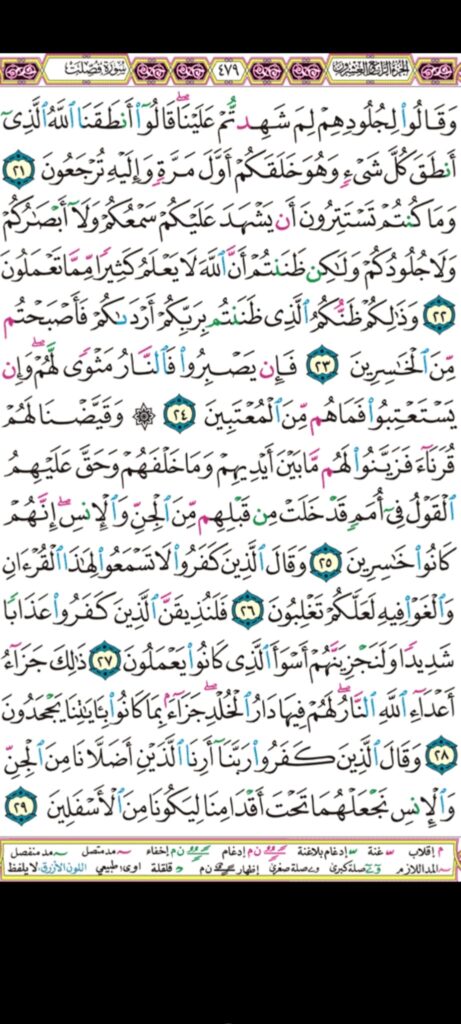 الجزء الرابع والعشرون ٤٧٩ سورة فصلت
وَقَالُوا۟ لِجُلُودِهِمْ لِمَ شَهِدتُّمْ عَلَيْنَا ۖ قَالُوٓا۟ أَنطَقَنَا ٱللَّهُ ٱلَّذِىٓ
أَنطَقَ كُلَّ شَىْءٍ وَهُوَ خَلَقَكُمْ أَوَّلَ مَرَّةٍ وَإِلَيْهِ تُرْجَعُونَ ٢١
وَمَا كُنتُمْ تَسْتَتِرُونَ أَن يَشْهَدَ عَلَيْكُمْ سَمْعُكُمْ وَلَآ أَبْصَـٰرُكُمْ
وَلَا جُلُودُكُمْ وَلَـٰكِن ظَنَنتُمْ أَنَّ ٱللَّهَ لَا يَعْلَمُ كَثِيرًا مِّمَّا تَعْمَلُونَ
٢٢ وَذَٰلِكُمْ ظَنُّكُمُ ٱلَّذِى ظَنَنتُم بِرَبِّكُمْ أَرْدَىٰكُمْ فَأَصْبَحْتُم
مِّنَ ٱلْخَـٰسِرِينَ ٢٣ فَإِن يَصْبِرُوا۟ فَٱلنَّارُ مَثْوًى لَّهُمْ ۖ وَإِن
يَسْتَعْتِبُوا۟ فَمَا هُم مِّنَ ٱلْمُعْتَبِينَ ٢٤ ۞ وَقَيَّضْنَا لَهُمْ
قُرَنَآءَ فَزَيَّنُوا۟ لَهُم مَّا بَيْنَ أَيْدِيهِمْ وَمَا خَلْفَهُمْ وَحَقَّ عَلَيْهِمُ
ٱلْقَوْلُ فِىٓ أُمَمٍ قَدْ خَلَتْ مِن قَبْلِهِم مِّنَ ٱلْجِنِّ وَٱلْإِنسِ ۖ إِنَّهُمْ
كَانُوا۟ خَـٰسِرِينَ ٢٥ وَقَالَ ٱلَّذِينَ كَفَرُوا۟ لَا تَسْمَعُوا۟ لِهَـٰذَا ٱلْقُرْءَانِ
وَٱلْغَوْا۟ فِيهِ لَعَلَّكُمْ تَغْلِبُونَ ٢٦ فَلَنُذِيقَنَّ ٱلَّذِينَ كَفَرُوا۟ عَذَابًا
شَدِيدًا وَلَنَجْزِيَنَّهُمْ أَسْوَأَ ٱلَّذِى كَانُوا۟ يَعْمَلُونَ ٢٧ ذَٰلِكَ جَزَآءُ
أَعْدَآءِ ٱللَّهِ ٱلنَّارُ ۖ لَهُمْ فِيهَا دَارُ ٱلْخُلْدِ ۖ جَزَآءًۢ بِمَا كَانُوا۟ بِـَٔايَـٰتِنَا يَجْحَدُونَ
٢٨ وَقَالَ ٱلَّذِينَ كَفَرُوا۟ رَبَّنَآ أَرِنَا ٱلَّذَيْنِ أَضَلَّانَا مِنَ ٱلْجِنِّ
وَٱلْإِنسِ نَجْعَلْهُمَا تَحْتَ أَقْدَامِنَا لِيَكُونَا مِنَ ٱلْأَسْفَلِينَ ٢٩
م إقلاب غنة إدغام بلاغنة ن م إدغام ن م إخفاء مد متصل مد منفصل
المد اللازم صلة كبرى و ے صلة صغرى إظهار ن م قلقلة اوى، طبيعي اللون الأزرق، لا يلفظ